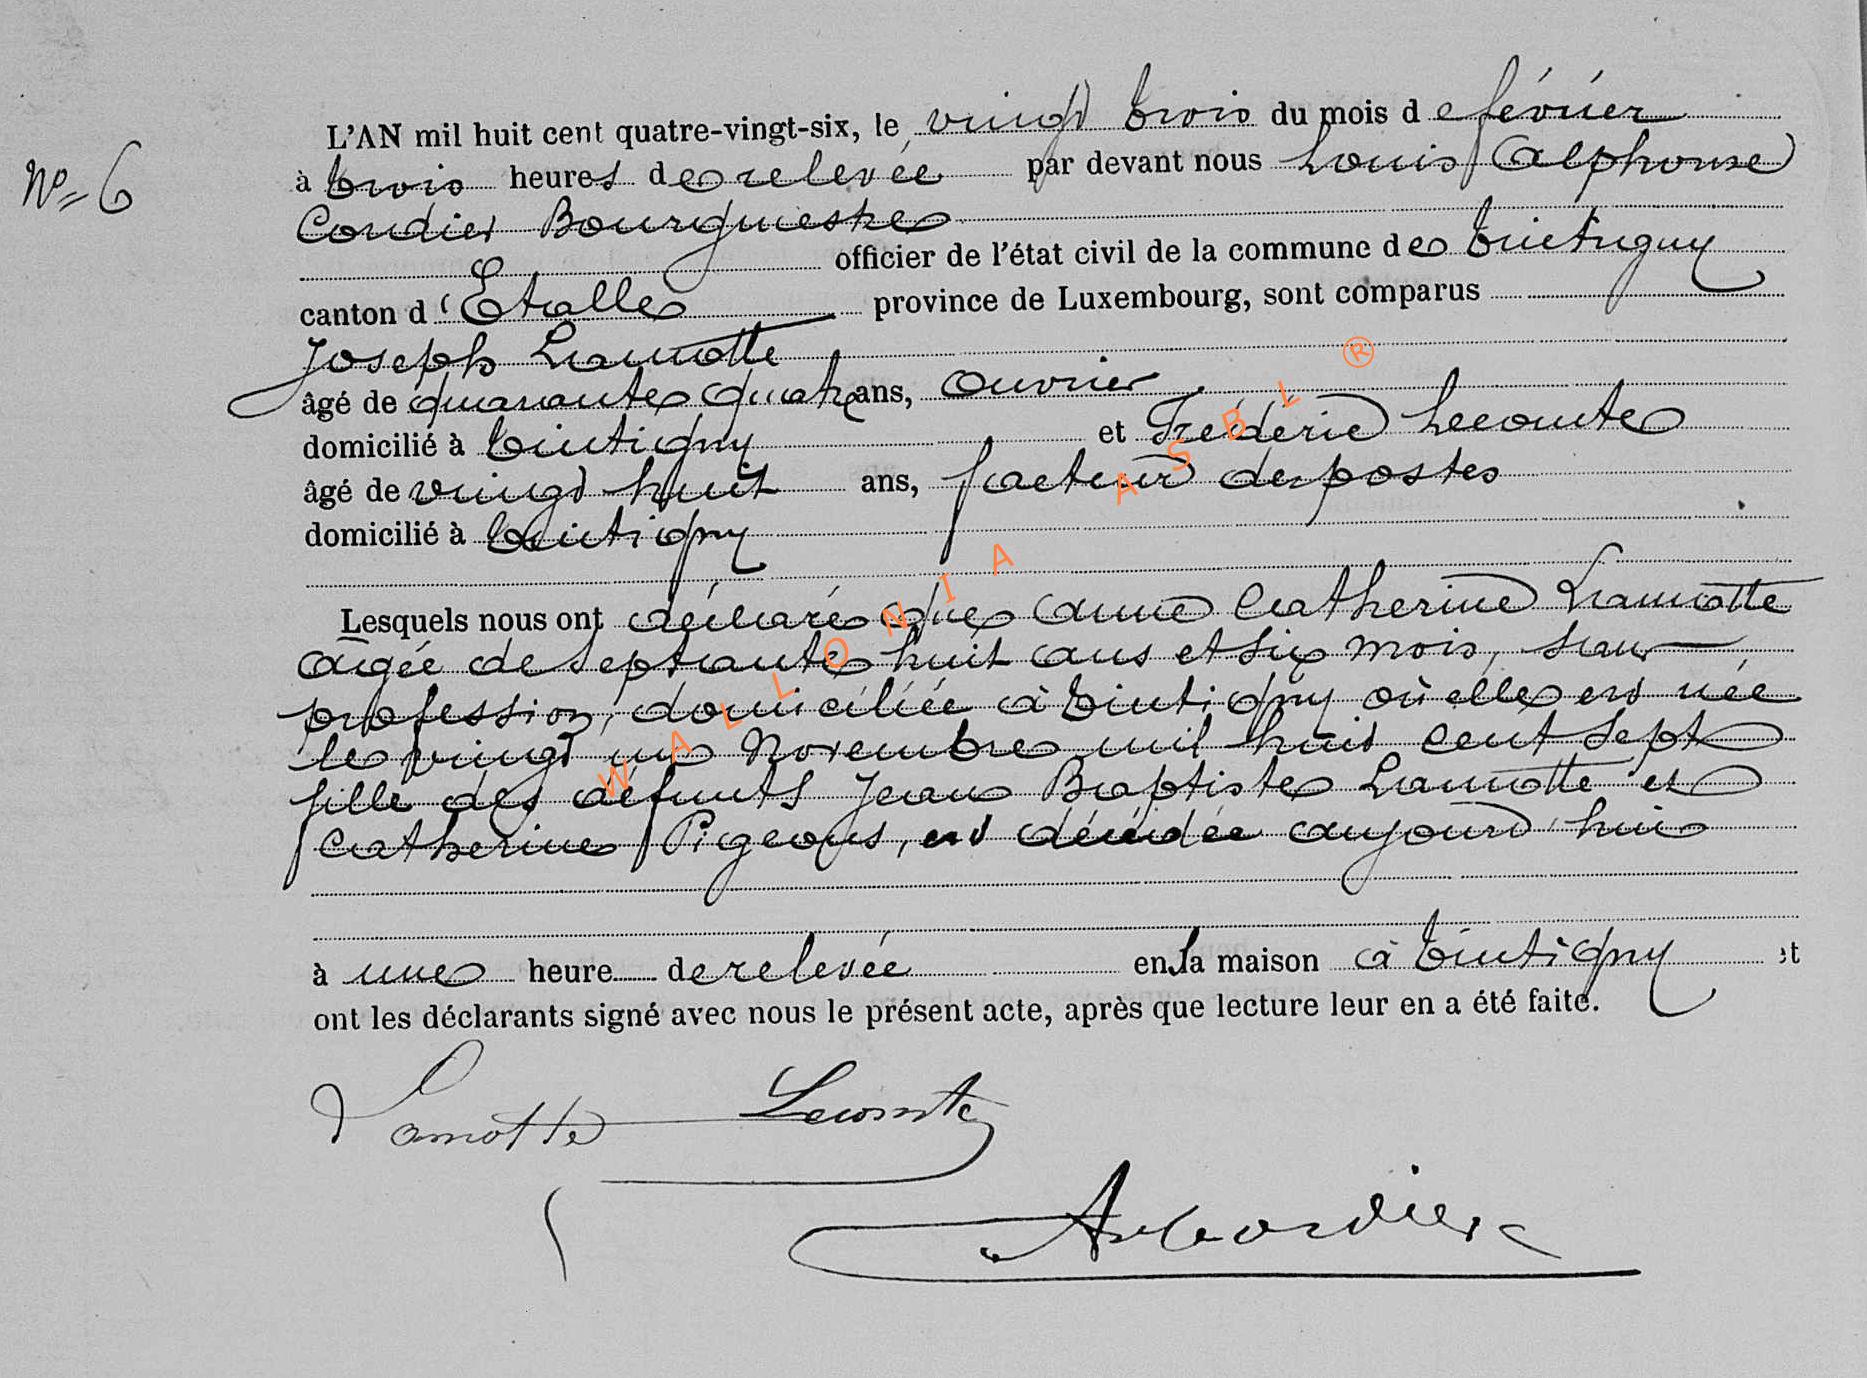 L'AN mil huit cent quatre-vingt-six, le vingt trois du mois de février
N° 6
à trois heures de relevée par devant nous Louis Alphonse
Cordier Bourgmestre
officier de l'état civil de la commune de Tintigny
canton d'Etalle province de Luxembourg, sont comparus
Joseph Lamotte
âgé de quarante quatre ans, ouvrier
domicilié à Tintigny et Frédéric Lecomte
âgé de vingt huit ans, facteur des postes
domicilié à Tintigny
Lesquels nous ont déclaré que Anne Catherine Lamotte
agée de septante huit ans et six mois, sans
profession, domiciliée à Tintigny où elle est née
le vingt un Novembre mil huit cent sept
fille des défunts Jean Baptiste Lamotte et
Catherine Pigeon, est décédée aujourd'hui
à une heure de relevée en la maison à Tintigny et
ont les déclarants signé avec nous le présent acte, après que lecture leur en a été faite.
Lamotte Lecomte
Cordier
WALLONIA ASBL ®